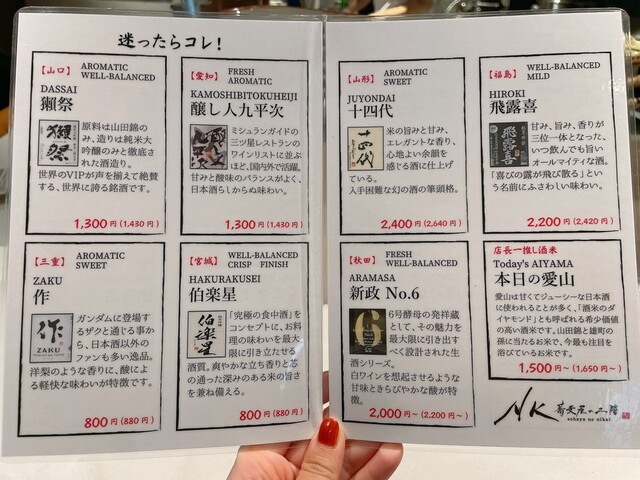 迷ったらコレ!
【山口】
AROMATIC
WELL-BALANCED
DASSAI
獺祭
獺祭
原料は山田錦の
み、造りは純米大
吟醸のみと徹底さ
れた酒造り。
世界のVIPが声を揃えて絶賛
する、世界に誇る銘酒です。
1,300円(1,430円)
【愛知】
FRESH
AROMATIC
KAMOSHIBITOKUHEIJI
醸し人九平次
ミシュランガイドの
三ツ星レストランの
ワインリストに並ぶ
ほど、国内外で活躍。
甘みと酸味のバランスがよく、
日本酒らしからぬ味わい。
1,300円(1,430円)
【三重】
AROMATIC
SWEET
ZAKU
作
作
ZAKU
ガンダムに登場す
るザクと通じる事か
ら、日本酒以外の
ファンも多い逸品。
洋梨のような香りに、酸によ
る軽快な味わいが特徴です。
800円(880円)
【宮城】
WELL-BALANCED
CRISP FINISH
HAKURAKUSEI
伯楽星
伯楽星
「究極の食中酒」を
コンセプトに、お料
理の味わいを最大
限に引き立たせる
酒質。爽やかな立ち香りと芯
の通った深みのある米の旨さ
を兼ね備える。
800円(880円)
【山形】
AROMATIC
SWEET
JUYONDAI
十四代
十四代
米の旨みと甘み、
エレガントな香り、
心地よい余韻を
感じる酒に仕上げ
ている。
入手困難な幻の酒の筆頭格。
2,400円(2,640円)
【福島】
WELL-BALANCED
MILD
HIROKI
飛露喜
飛露喜
甘み、旨み、香りが
三位一体となった、
いつ飲んでも旨い
オールマイティな酒。
「喜びの露が飛び散る」とい
う名前にふさわしい味わい。
2,200円(2,420円)
【秋田】
FRESH
WELL-BALANCED
ARAMASA
新政 No.6
6号酵母の発祥蔵
として、その魅力を
最大限に引き出す
べく設計された生
酒シリーズ。
白ワインを想起させるような
甘味ときらびやかな酸が特
徴。
2,000円〜(2,200円〜)
店長一推し酒米
Today's AIYAMA
本日の愛山
愛山は甘くてジューシーな日本酒
に使われることが多く、「酒米のダ
イヤモンド」とも呼ばれる希少価値
の高い酒米です。山田錦と雄町の
孫に当たるお米で、今最も注目を
浴びているお米です。
1,500円〜(1,650円〜)
NK 蕎麦屋の二階
sobaya no nikai